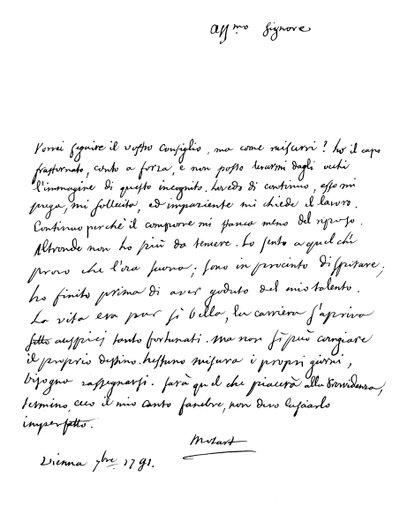 Aff.mo Signore
Vorrei seguire il vostro Consiglio, ma come riuscirvi? ho il capo
frastornato, conto a forza, e non posso levarmi dagli occhi
l'immagine di questo incognito. Lo vedo di continuo, esso mi
prega, mi sollecita, ed impaziente mi chiede il lavoro.
Continuo perchè il comporre mi stanca meno del riposo.
Altronde non ho più da temere. Lo sento a quel che
provo che l'ora suona; sono in procinto di spirare;
ho finito prima di aver goduto del mio talento.
La vita era pur sì bella, la carriera s'apriva
sotto auspici tanto fortunati. ma non si può cangiare
il proprio destino. Nessuno misura i propri giorni,
bisogna rassegnarsi. Sarà quel che piacerà alla Providenza,
termino, ecco il mio canto funebre, non devo lasciarlo
imperfetto.
Mozart
Vienna 7bre 1791.